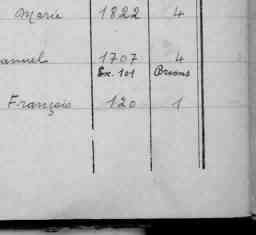 Marie 1822 4
anuel 1707 4
Ex. 101 Brions
François 120 1